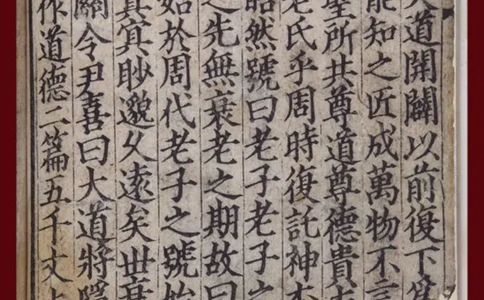 道開闢以前復下
能知之匠成萬物不言
聖所共尊道尊德貴
老氏乎周時復託神李
皓然號曰老子老子之
之先無衰老之期故曰
始於周代老子之號始
冥眇邈久遠矣世衰
關令尹喜曰大道將隱
作道德二篇五千文上